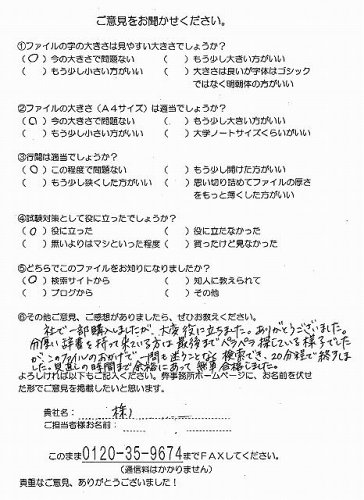 ご意見をお聞かせください。
①ファイルの字の大きさは見やすい大きさでしょうか?
(○) 今の大きさで問題ない ( ) もう少し大きい方がいい
( ) もう少し小さい方がいい ( ) 大きさは良いが字体はゴシック
ではなく明朝体の方がいい
②ファイルの大きさ(A4サイズ)は適当でしょうか?
(○) 今の大きさで問題ない ( ) もう少し大きい方がいい
( ) もう少し小さい方がいい ( ) 大学ノートサイズくらいがいい
③行間は適当でしょうか?
(○) この程度で問題ない ( ) もう少し開けた方がいい
( ) もう少し狭くした方がいい ( ) 思い切り詰めてファイルの厚さ
をもっと薄くした方がいい
④試験対策として役に立ったでしょうか?
(○) 役に立った ( ) 役に立たなかった
( ) 無いよりはマシといった程度 ( ) 買ったけど見なかった
⑤どちらでこのファイルをお知りになりましたか?
(○) 検索サイトから ( ) 知人に教えられて
( ) ブログから ( ) その他
⑥その他ご意見、ご感想がありましたら、ぜひお教えください。
社で一部購入しましたが、大変役に立ちました。ありがとうございました。
分厚い辞書を持って来ている方は最後までペラペラ探している様子でした
が、このファイルのおかげで一問も迷うことなく検索でき、20分程で終了しま
した。見直しの時間まで余裕にあって無事合格しました。
よろしければ以下もご記入ください。弊事務所ホームページに、お名前を伏せ
た形でご意見を掲載したいと思います。
貴社名: 様)
ご担当者様お名前:
このまま0120-35-9674までFAXしてください。
(通信料はかかりません)
貴重なご意見、ありがとうございました!